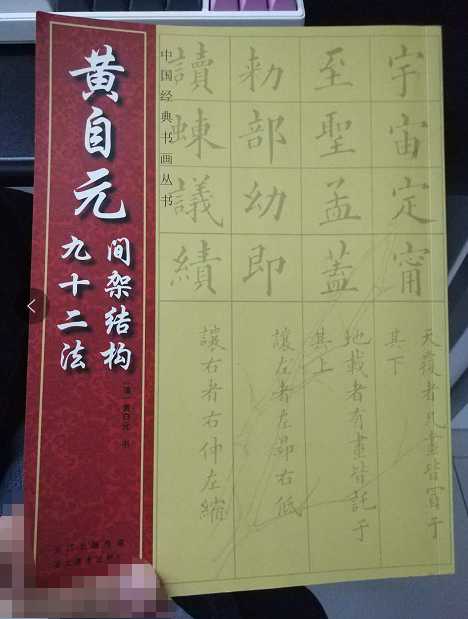 黄自元
间架结构
九十二法
〔清〕黄自元 书
中国经典书画丛书
宇宙定甯
至聖孟蓋
勑部幼即
讀蝀議績
天覆者凡畫皆冒于
其下
地載者有畫皆託于
其上
讓左者左昂右低
讓右者右伸左縮